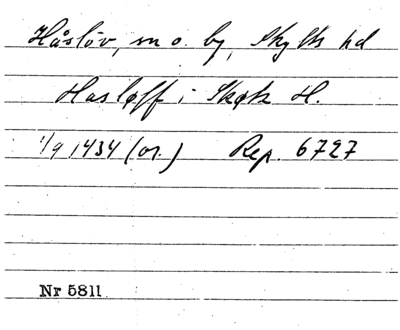 Håslöv, sn o. by, Skytts hd
Hasløff i Skøtz H.
1/9 1434 (or.) Rep. 6727
Nr 5811